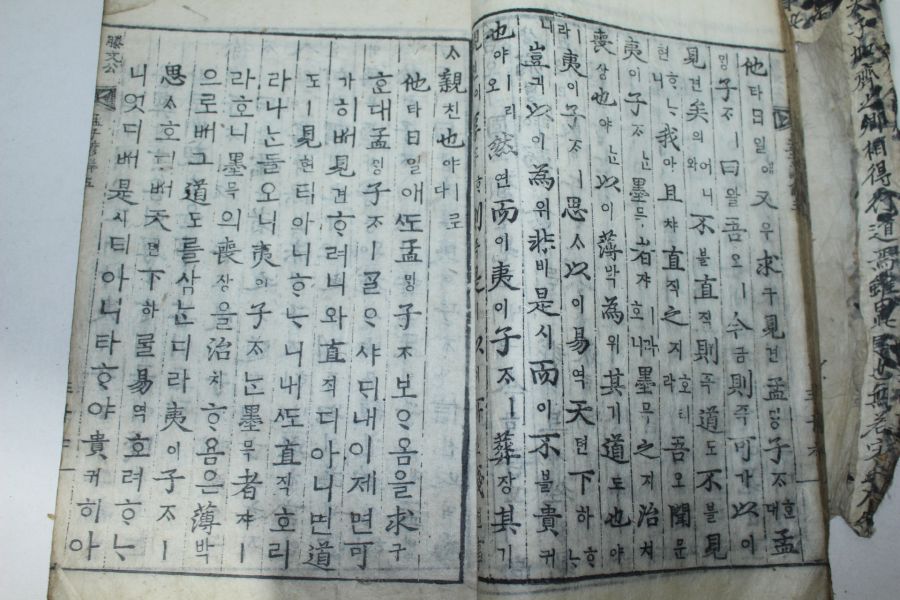 他타日일애又우求구見견孟ᄆᆡᆼ子ᄌᆞᄒᆞᆫ대孟
ᄆᆡᆼ子ᄌᆞㅣ曰왈吾오ㅣ今금則즉可가以이
見견矣의어니와不불直직則즉道도不블見
현ᄒᆞᄂᆞ니我아且챠直직之지호리라吾오聞문
夷이子ᄌᆞᄂᆞᆫ墨믁者쟈ㅣ라호니墨믁之지治치
喪상也야ᄂᆞᆫ以이薄박為위其기道도也야
ㅣ라夷이子ᄌᆞㅣ思ᄉᆞ以이易역天텬下하ᄒᆞᄂᆞ
니豈긔以이為위非비是시而이不블貴귀
也야ㅣ리오然연而이夷이子ᄌᆞㅣ葬장其기
ᄉᆞ親친也야ㅣ로다
他타日일애ᄯᅩ孟ᄆᆡᆼ子ᄌᆞ보ᄋᆞ옴을求구
ᄒᆞᆫ대孟ᄆᆡᆼ子ᄌᆞㅣᄀᆞᆯᄋᆞ샤ᄃᆡ내이제면可
가히ᄡᅥ見견ᄒᆞ려니와直직디아니면道
도ㅣ見현티아니ᄒᆞᄂᆞ니내ᄯᅩ直직호리
라나ᄂᆞᆫ들오니夷이子ᄌᆞᄂᆞᆫ墨믁者쟈ㅣ
라호니墨믁의喪상을治치ᄒᆞ욤은薄박
으로ᄡᅥ그道도를삼ᄂᆞᆫ디라夷이子ᄌᆞㅣ
思ᄉᆞ호ᄃᆡᄡᅥ天텬下하ᄅᆞᆯ易역호려ᄒᆞᄂᆞ
니엇디ᄡᅥ是시티아니타ᄒᆞ야貴귀히아
滕文公